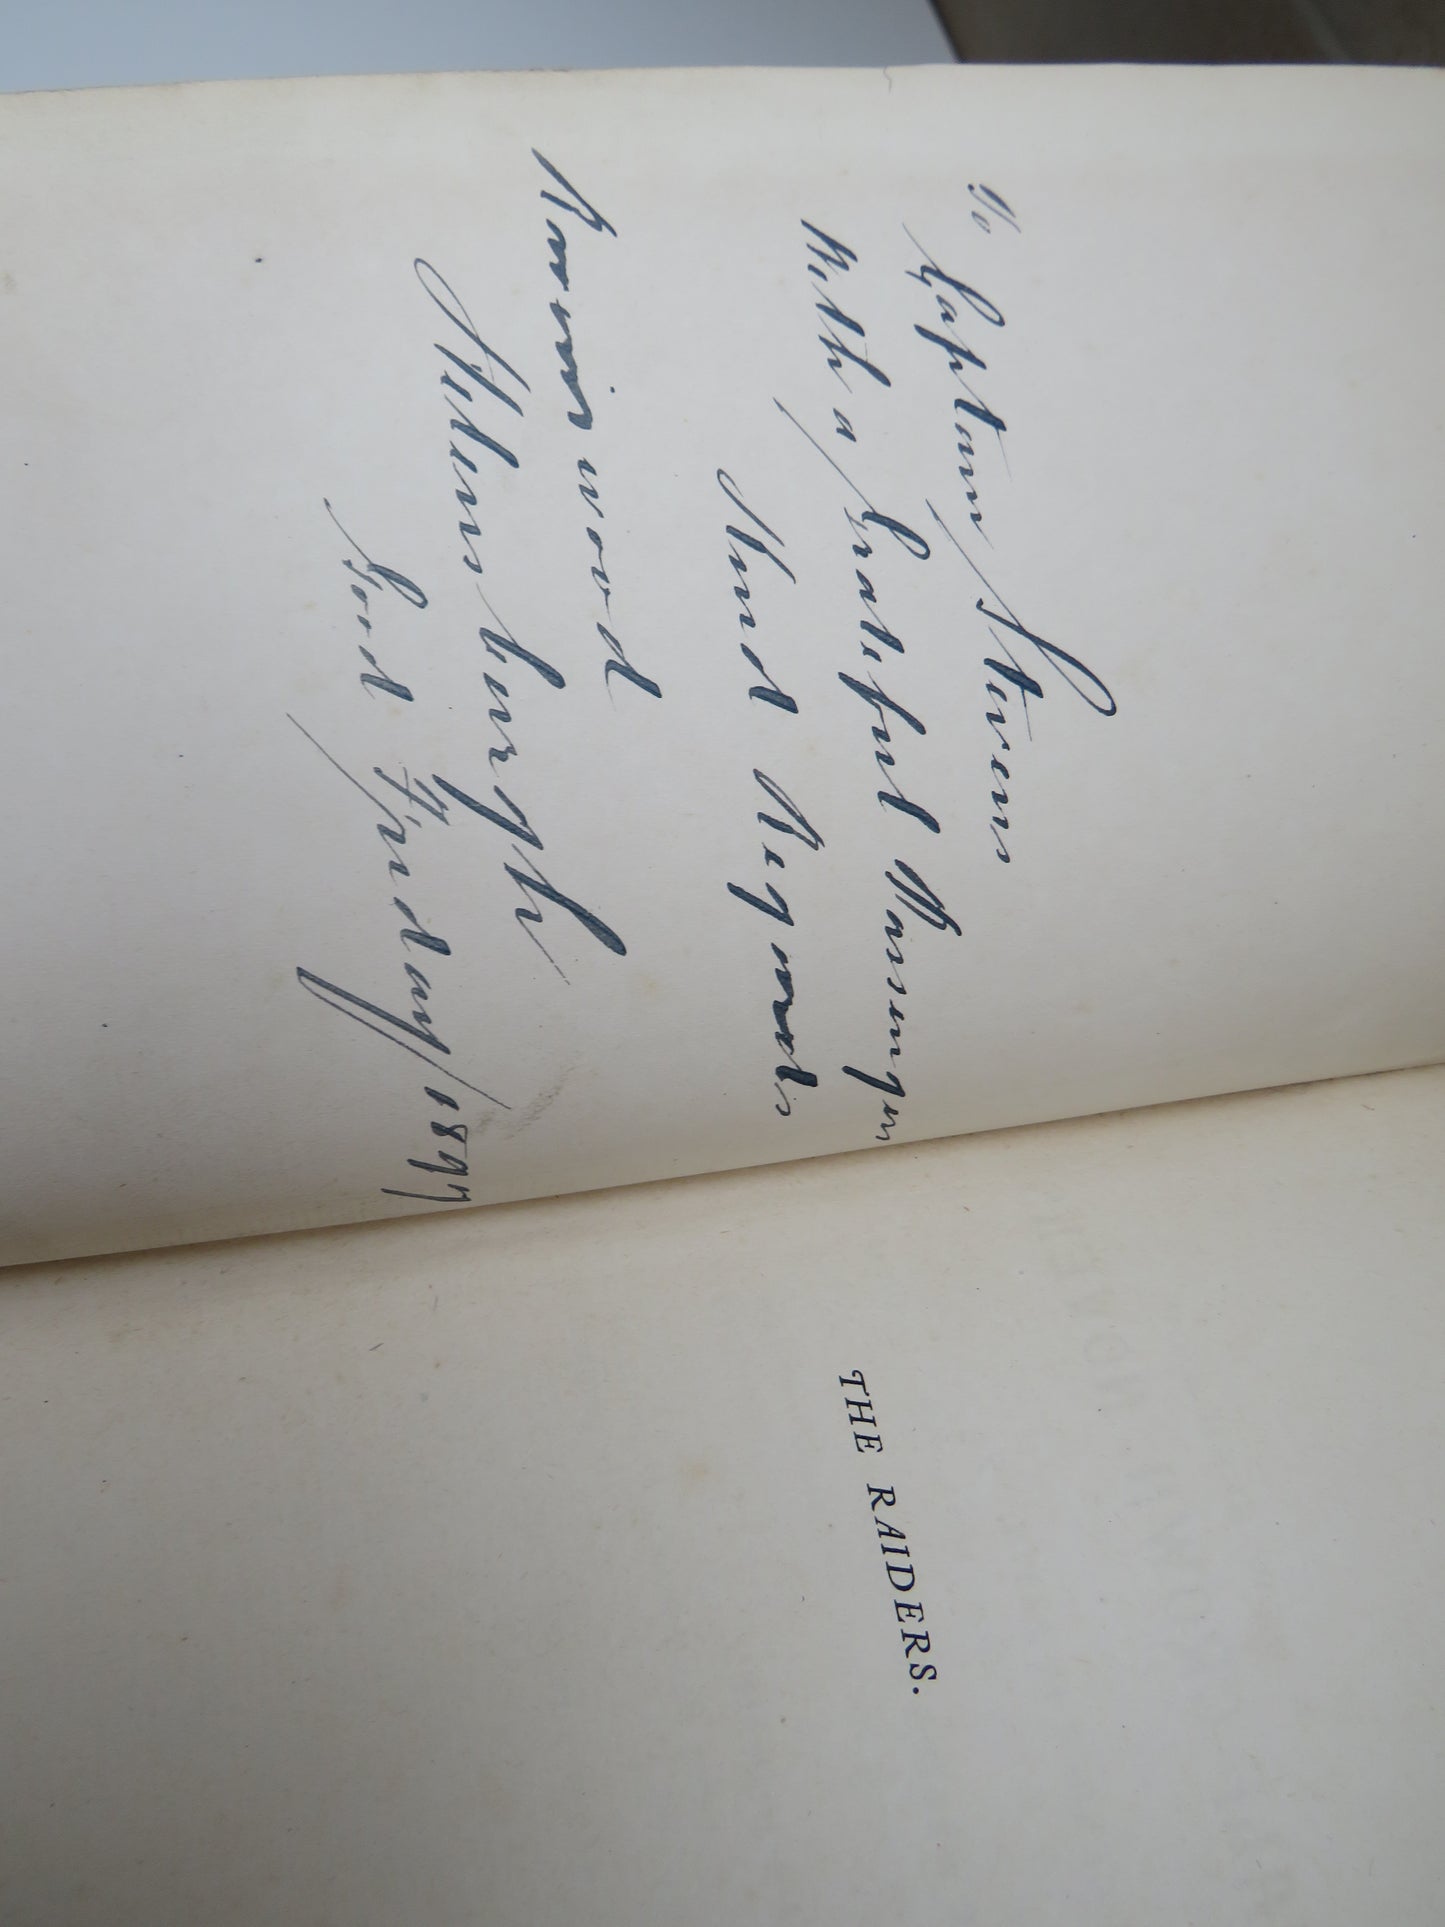 To Captain Stevens
With a Grateful Passengers
Kind Regards
Rowanswood
Helensburgh
Good Friday/1897
THE RAIDERS.